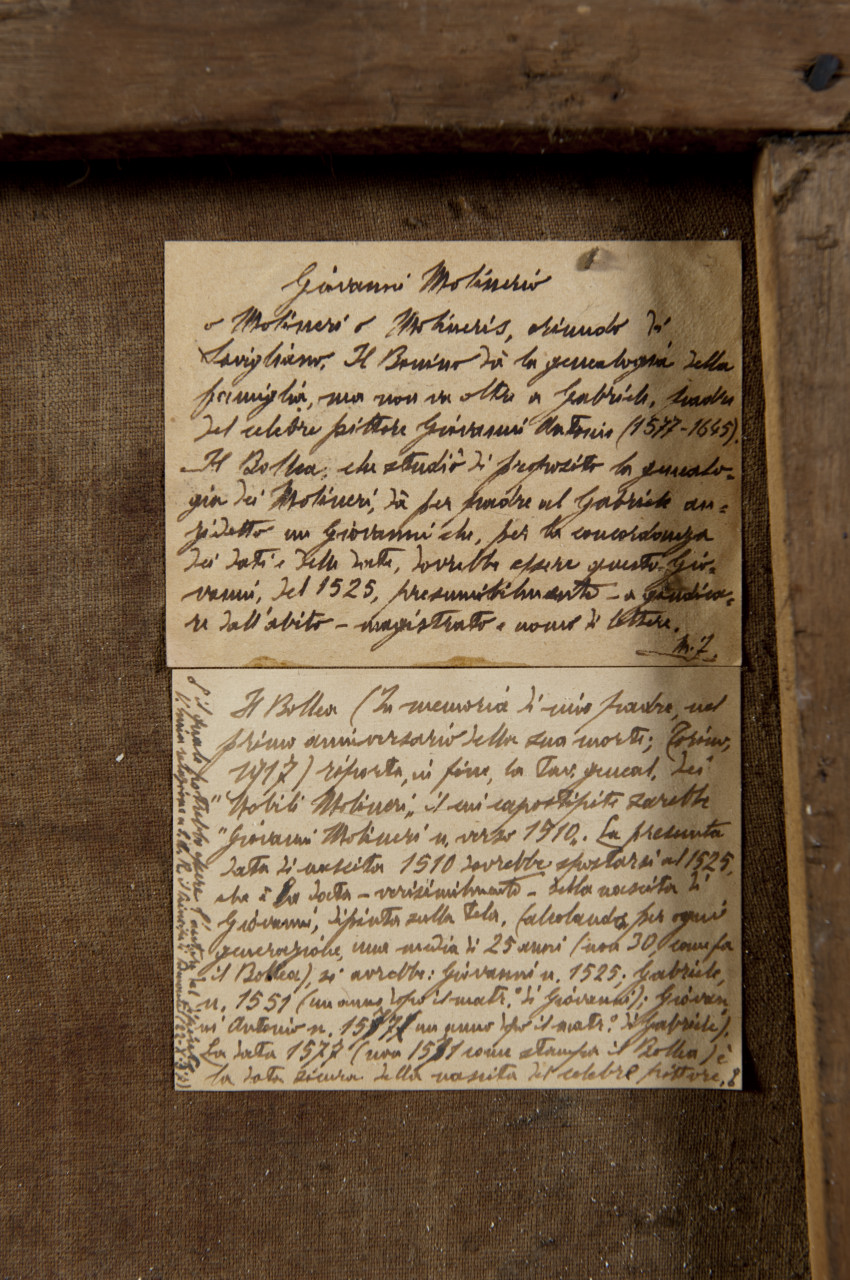 Giovanni Molinerio
o Molineri o Molineris, oriundo di
Savigliano. Il Bonino dà la genealogia della
famiglia, ma non va oltre a Gabriele, padre
del celebre pittore Giovanni Antonio (1577-1645).
Il Bollea, che studiò di proposito la genealo-
gia dei Molineri, dà per padre al Gabriele an=
zidetto un Giovanni che, per la concordanza
dei dati e delle date, dovrebbe essere questo Gio-
vanni, del 1525, presumibilmente - a giudica=
re dall'abito - magistrato e uomo di lettere.
Il Bollea (In memoria di mio padre, nel
primo anniversario della sua morte; Torino,
1917) riporta, in fine, la Tav. geneal. dei
"Nobili Molineri", il cui capostipite sarebbe
"Giovanni Molineri n. verso 1510". La presunta
data di nascita 1510 dovrebbe spostarsi al 1525,
che è la data - verisimilmente - della nascita di
Giovanni, dipinta sulla tela. Calcolando, per ogni
generazione, una media di 25 anni (non 30, come fa
il Bollea), si avrebbe: Giovanni n. 1525; Gabriele,
n. 1551 (un anno dopo il matr.° di Giovanni); Giovan
ni Antonio n. 1577 (un anno dopo il matr.° di Gabriele).
La data 1577 (non 1581 come stampa il Bollea) è
la data sicura della nascita del celebre pittore,
il quale potrebbe essere l'autore del